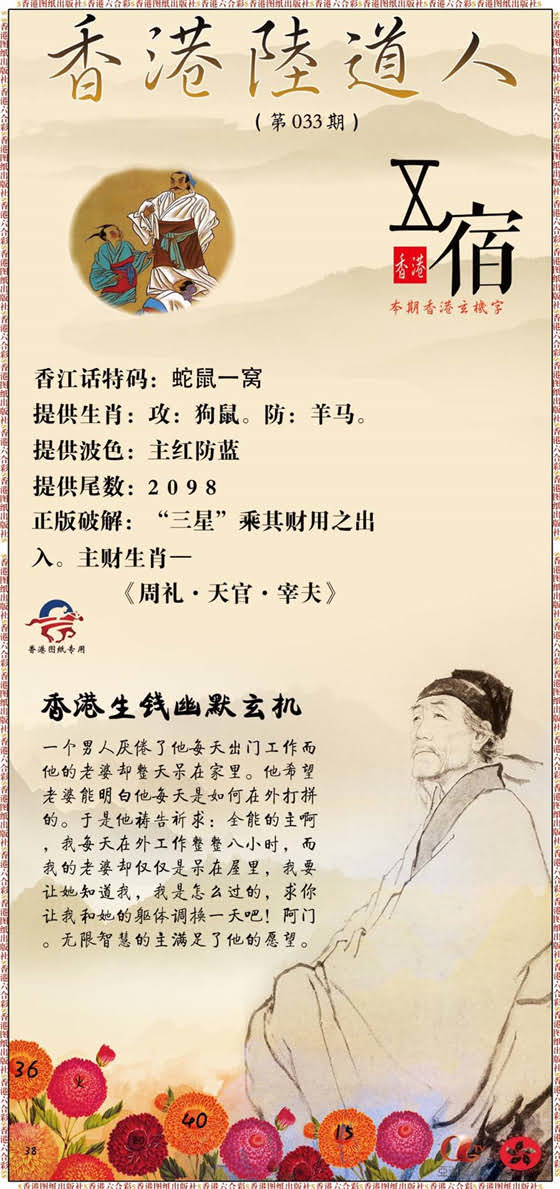 香港陸道人
(第033期)
宿
香港
本期香港玄機字
香江话特码：蛇鼠一窝
提供生肖：攻：狗鼠。防：羊马。
提供波色：主红防蓝
提供尾数：2098
正版破解：“三星”乘其财用之出
入。主财生肖—
《周礼·天官·宰夫》
香港图纸专用
香港生钱幽默玄机
一个男人厌倦了他每天出门工作而
他的老婆却整天呆在家里。他希望
老婆能明白他每天是如何在外打拼
的。于是他祷告祈求：全能的主啊
，我每天在外工作整整八小时，而
我的老婆却仅仅是呆在屋里，我要
让她知道我，我是怎么过的，求你
让我和她的躯体调换一天吧！阿门
。无限智慧的主满足了他的愿望。
36
火
40
15
38